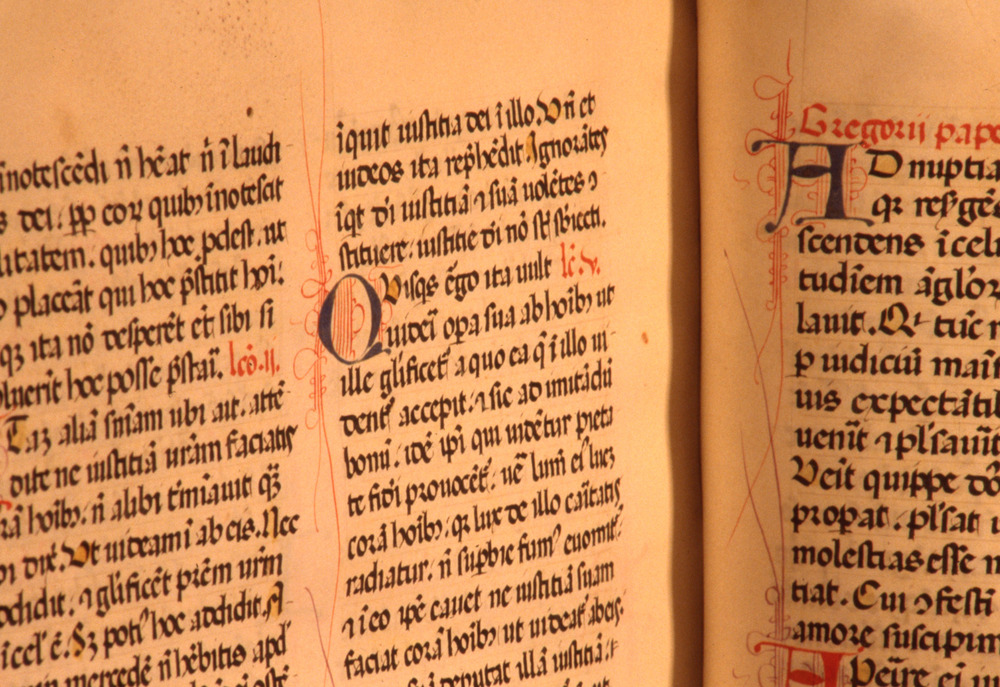 īnotescēdi n̄ hēat n̄ ī laudi
dei. p̱p̱ cor quibꝫ īnotescit
litatem. quibꝫ hoc ꝓdest. ut
placeāt qui hoc p̄stitit hoī.
qꝫ ita nō desperēt et sibi si
luerit hoc posse p̄stari. lcō.ij.
Taꝫ aliā sn̄iam ubi ait. attē
dite ne iustitiā urām faciatis
rā hoībꝫ. n̄ alibi t'miauit qꝫ
dix̄. Ut uideamī ab eis. Nec
addidit. ⁊ glificēt pr̄em ur̄m
ī cel' ē. Sꝫ poti' hoc addidit. A
mercedē n̄ hēbitis apd'
īquit iustitia dei ī illo. Vn̄ et
iudeos ita rep̄hēdit. Ignorātes
īqt di' iustitiā ⁊ suā uolētes ꝯ
stituere. iustitie di' nō st̄ sb̄iecti.
Quisqs ēgo ita uult lc̄.v.
uideri oꝑa sua ab hoībꝫ ut
ille glificet' a quo ea q̄ ī illo ui
dent' accepit. ⁊ sic ad imitādū
bonū. idē ip̄i qui uidētur pieta
te fidi prouocēt'. ue̅ lum̄ ei' lucꝫ
corā hoībꝫ. qꝛ lux de illo cāitatis
radiatur. n̄ suꝑbie fum' euomit'.
⁊ ī eo ip̄e cauet ne iustitiā suam
faciat corā hoībꝫ ut uideat' ab eis.
deputat illā iustitiā.
Gregorii pape
AD nuptia
qꝛ
scendens ī cela
tudiem āglor
lauit. Qꝛ tūc n
ꝑ iudiciū
uis expectātib
uenit ⁊ pl'sauit
Venit quippe dō
proꝑat. pl'sat
molestias esse
tiat. Cui ꝯfesti
amore suscipim
Aperire ei